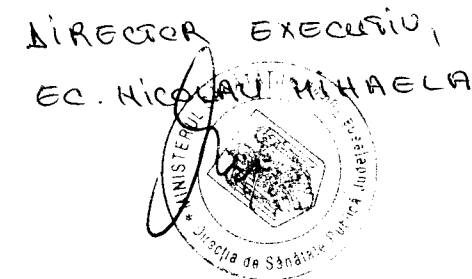 DIRECTOR EXECUTIV,
EC. NICOLAU MIHAELA
MINISTERUL
* Direcția de Sănătate Publică Județeană